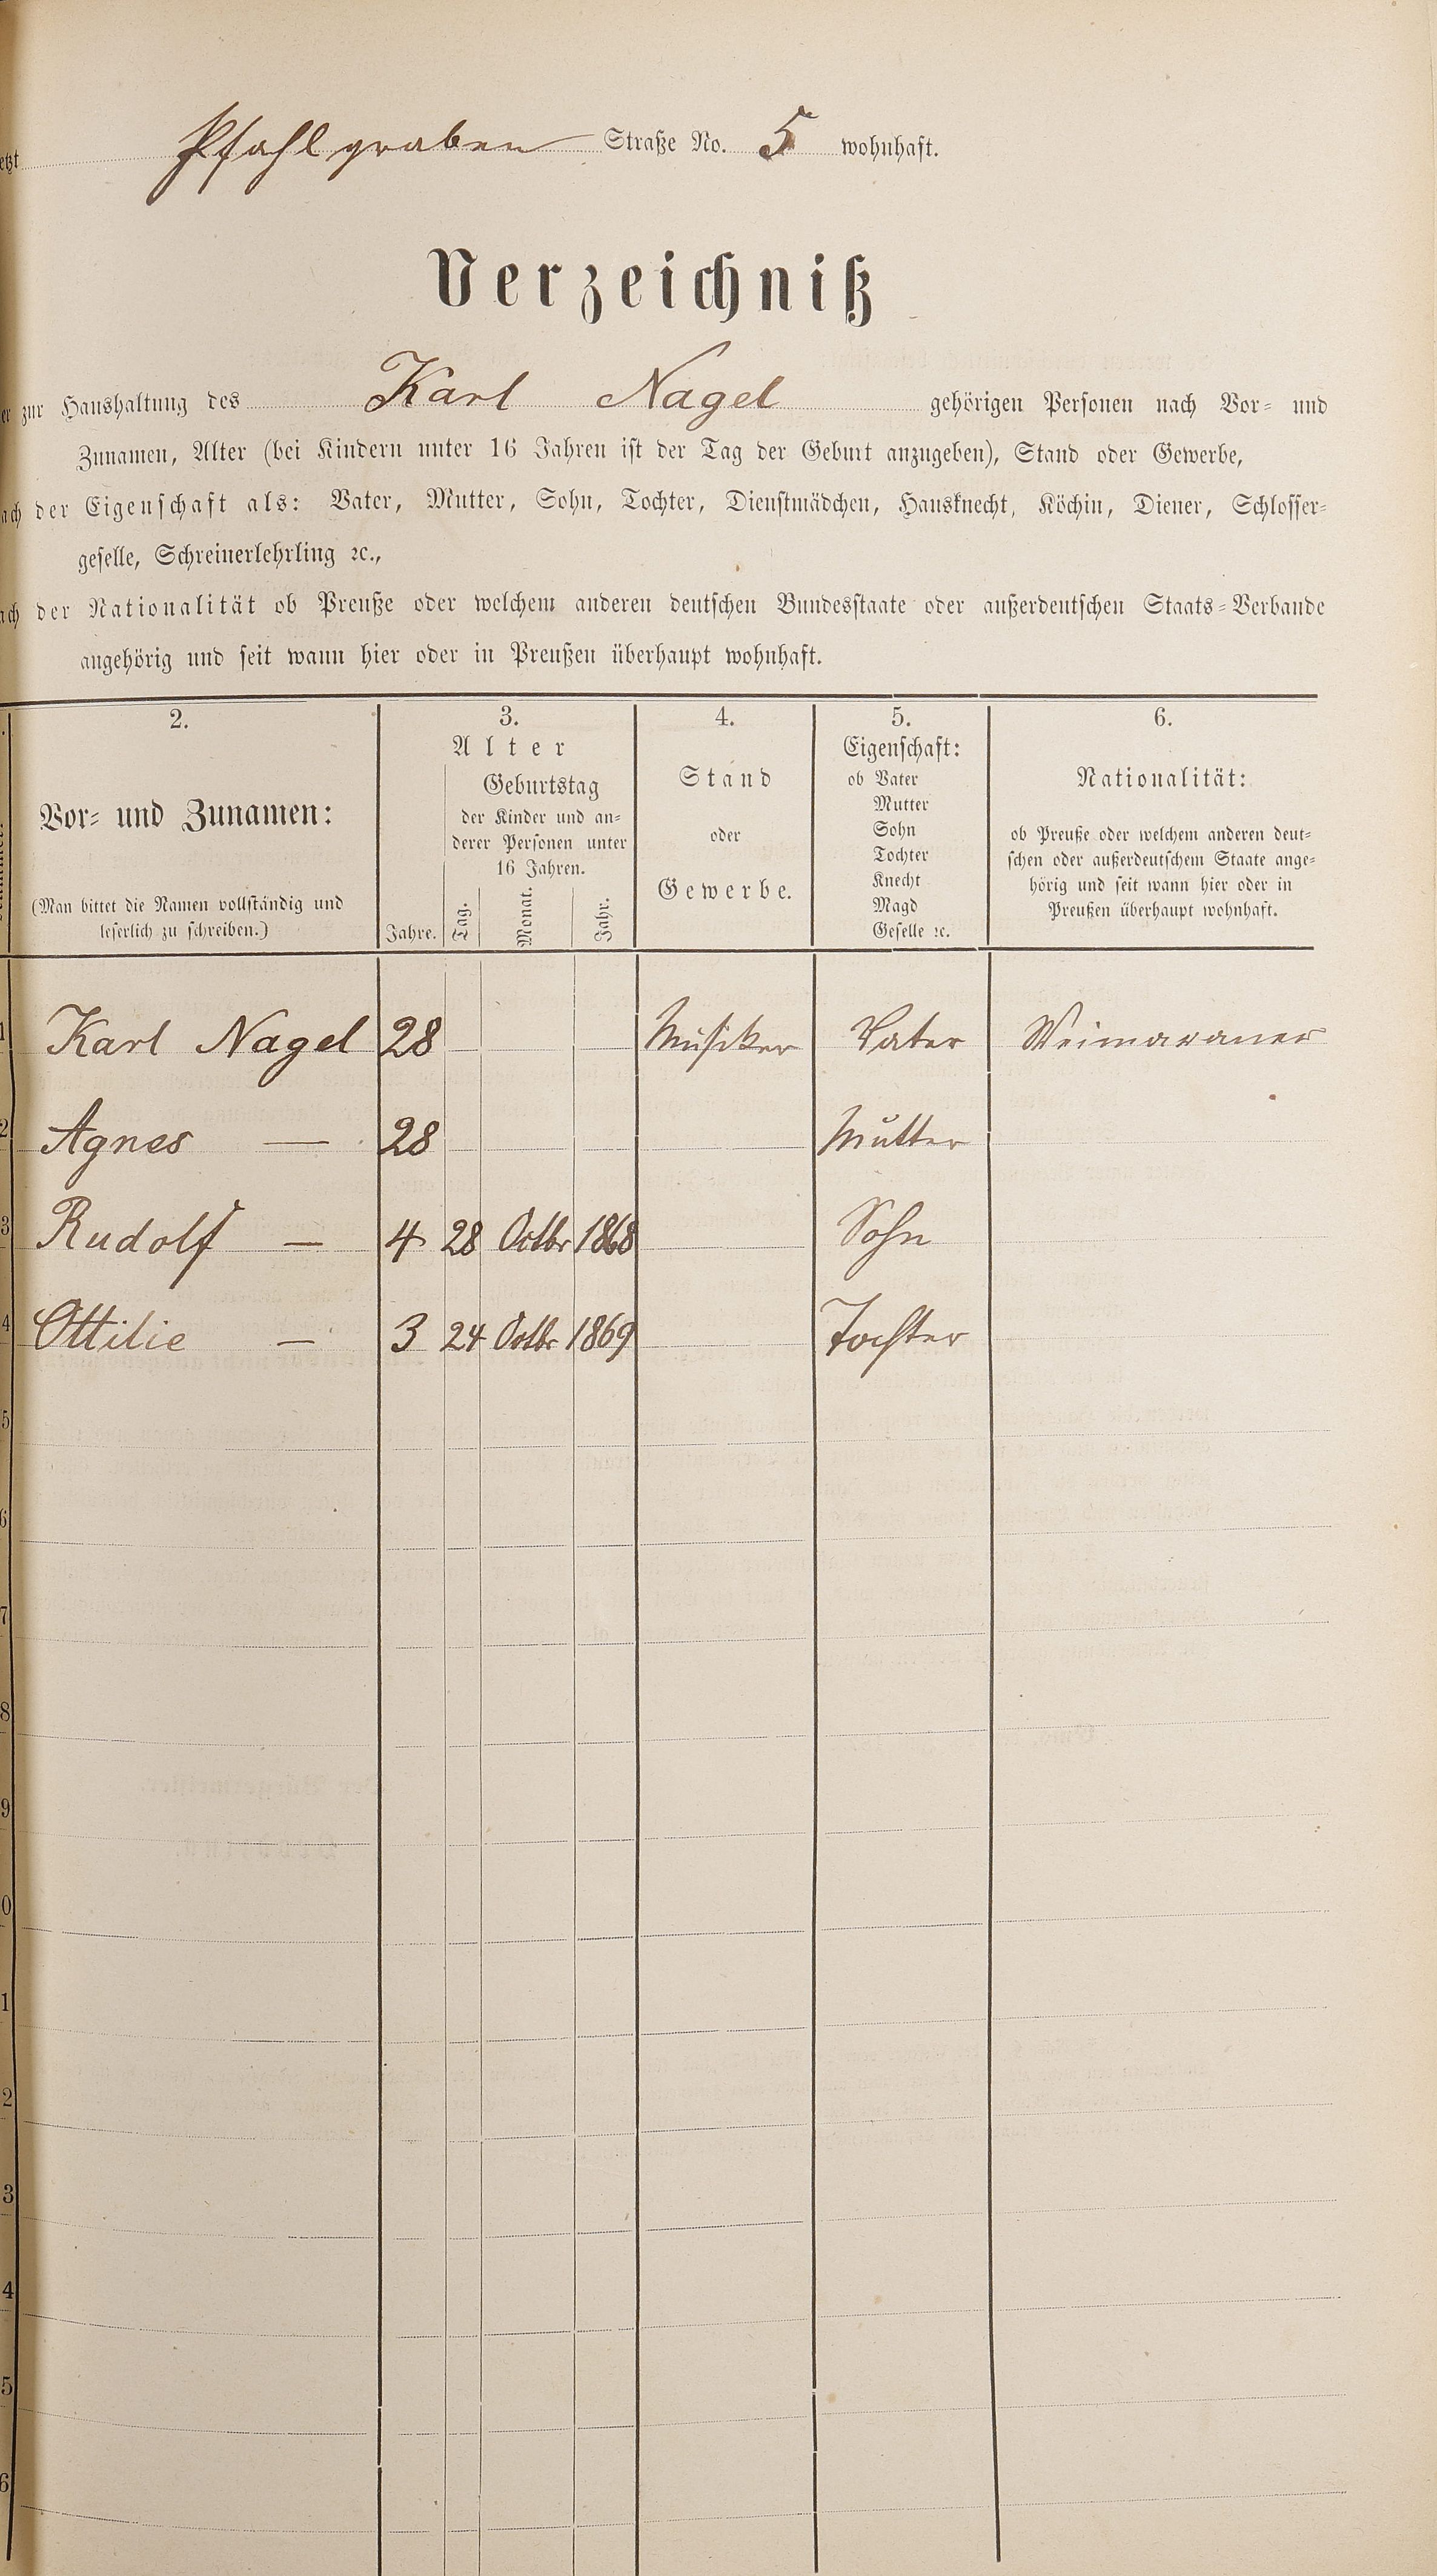 Pfahlgraben Straße No. 5 wohnhaft.
Verzeichniß
zur Haushaltung des Karl Nagel gehörigen Personen nach Vor- und
Zunamen, Alter (bei Kindern unter 16 Jahren ist der Tag der Geburt anzugeben), Stand oder Gewerbe,
der Eigenschaft als: Vater, Mutter, Sohn, Tochter, Dienstmädchen, Hausknecht, Köchin, Diener, Schlosser-
geselle, Schreinerlehrling ꝛc.,
der Nationalität ob Preuße oder welchem anderen deutschen Bundesstaate oder außerdeutschen Staats-Verbande
angehörig und seit wann hier oder in Preußen überhaupt wohnhaft.
2. 3. 4. 5. 6.
Vor- und Zunamen:
(Man bittet die Namen vollständig und
leserlich zu schreiben.)
Alter
Geburtstag
der Kinder und an-
derer Personen unter
16 Jahren.
Jahre. Tag. Monat. Jahr.
Stand
oder
Gewerbe.
Eigenschaft:
ob Vater
Mutter
Sohn
Tochter
Knecht
Magd
Geselle ꝛc.
Nationalität:
ob Preuße oder welchem anderen deut-
schen oder außerdeutschem Staate ange-
hörig und seit wann hier oder in
Preußen überhaupt wohnhaft.
1 Karl Nagel 28 Musiker Vater Weimaraner
2 Agnes — 28 Mutter
3 Rudolf — 4 28 Octbr 1868 Sohn
4 Ottilie — 3 24 Octbr 1869 Tochter
5
6
7
8
9
0
1
2
3
4
5
6